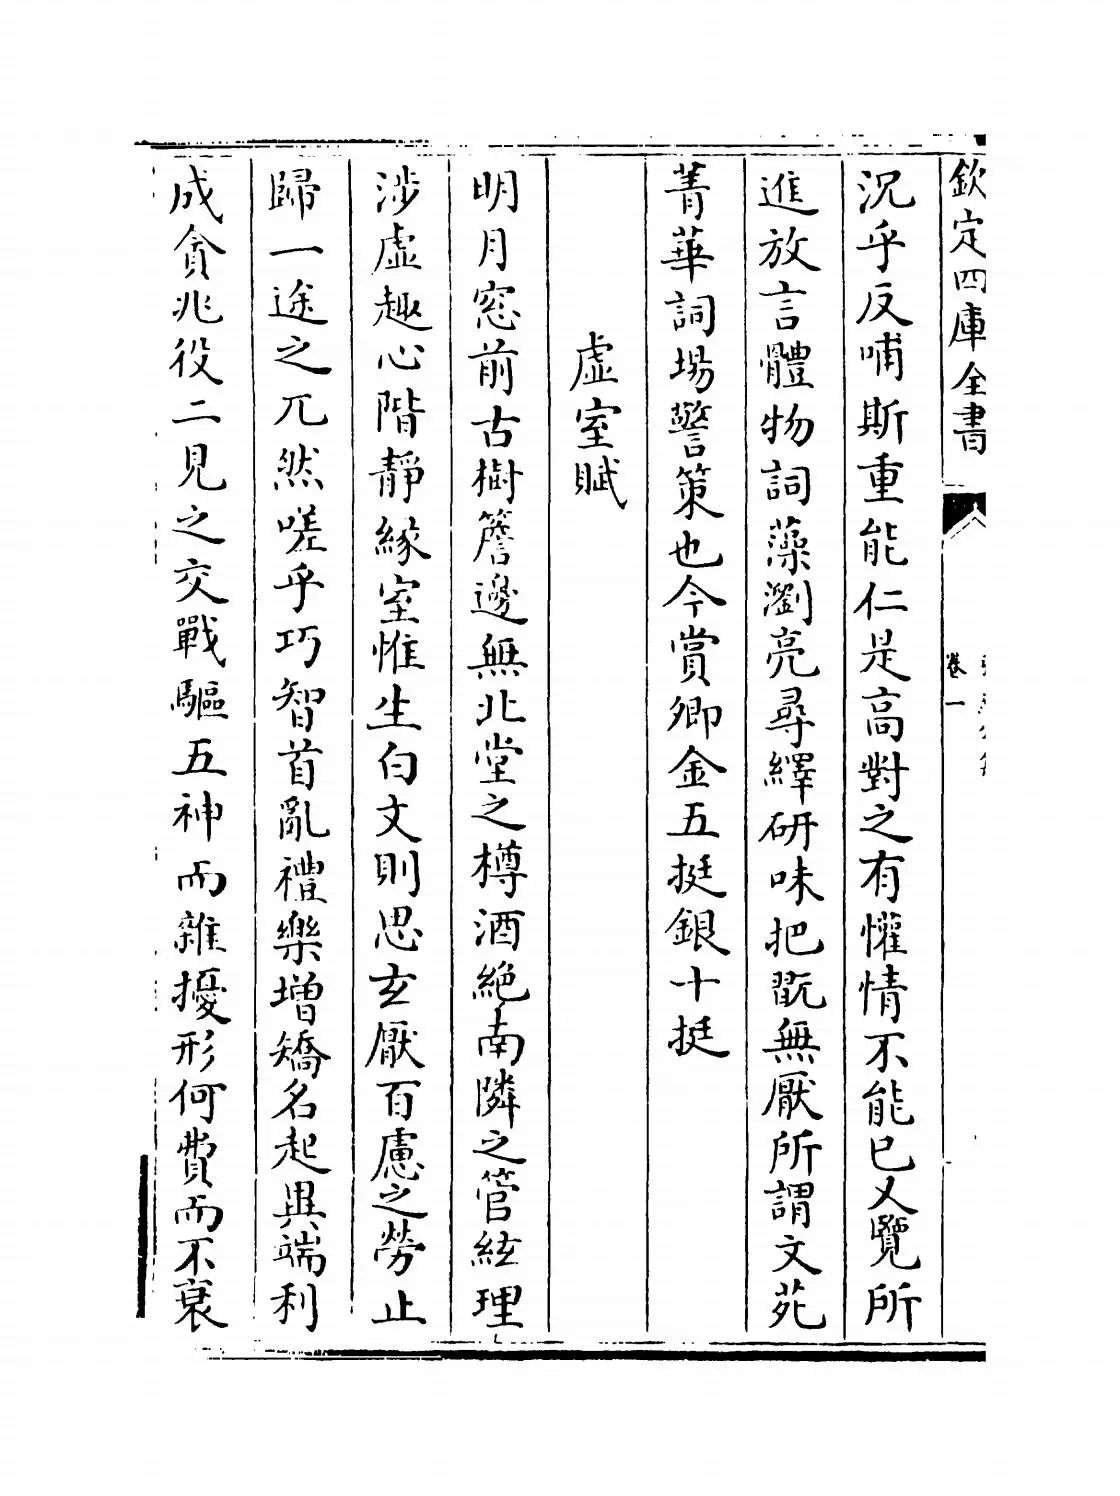 欽定四庫全書
卷一
況乎反哺斯重能仁是高對之有懽情不能已又覽所
進放言體物詞藻瀏亮尋繹研味把翫無厭所謂文苑
菁華詞場警策也今賞卿金五挺銀十挺
虛室賦
明月窓前古樹簷邊無北堂之樽酒絶南隣之管絃理
涉虛趣心階靜緣室惟生白文則思玄厭百慮之勞止
歸一途之兀然嗟乎巧智首亂禮樂增矯名起異端利
成貪兆役二見之交戰驅五神而雜擾形何費而不衰